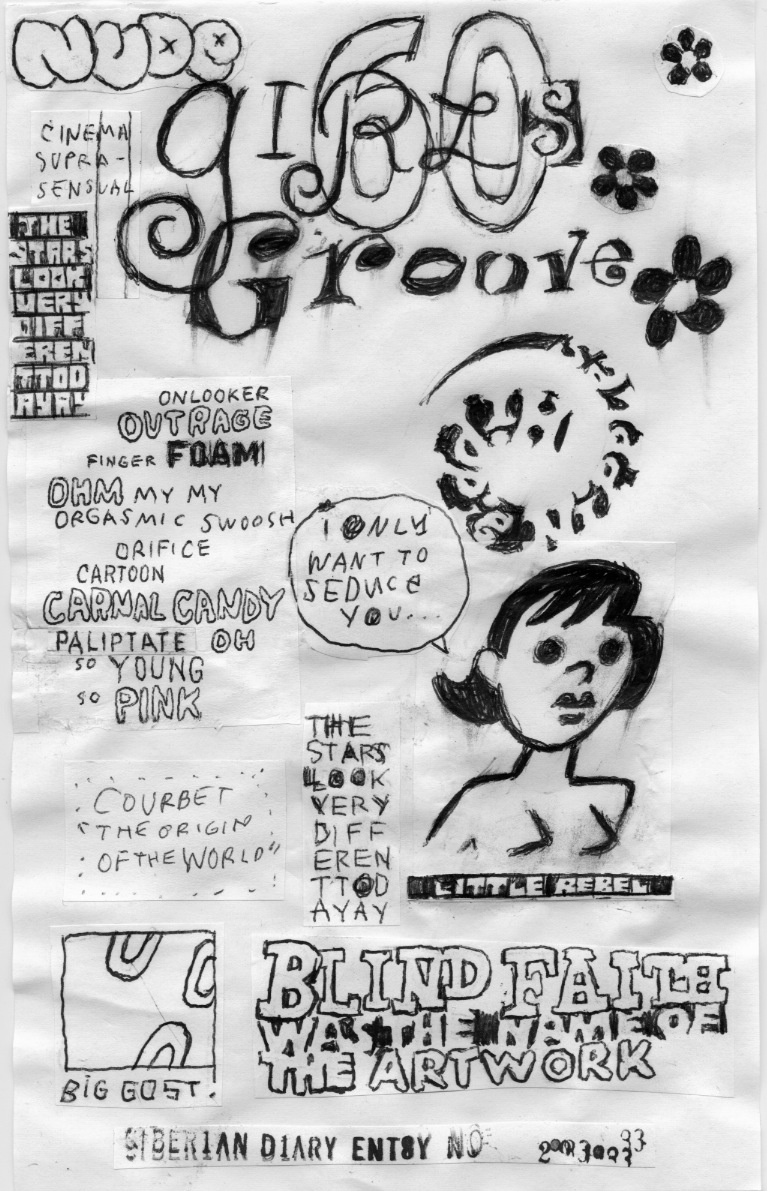 NUDE
60
GIRLS
Groove
CINEMA
SUPRA-
SENSUAL
THE
STARS
LOOK
VERY
DIFF
EREN
TTOD
AYAY
ONLOOKER
OUTRAGE
FINGER FOAM
OHM MY MY
ORGASMIC SWOOSH
ORIFICE
CARTOON
CARNAL CANDY
PALIPTATE OH
SO YOUNG
SO PINK
I ONLY
WANT TO
SEDUCE
YOU...
THE
STARS
LOOK
VERY
DIFF
EREN
TTOD
AYAY
LITTLE REBEL
COURBET
"THE ORIGIN
OF THE WORLD"
BIG GOST.
BLIND FAITH
WAS THE NAME OF
THE ARTWORK
SIBERIAN DIARY ENTSY NO